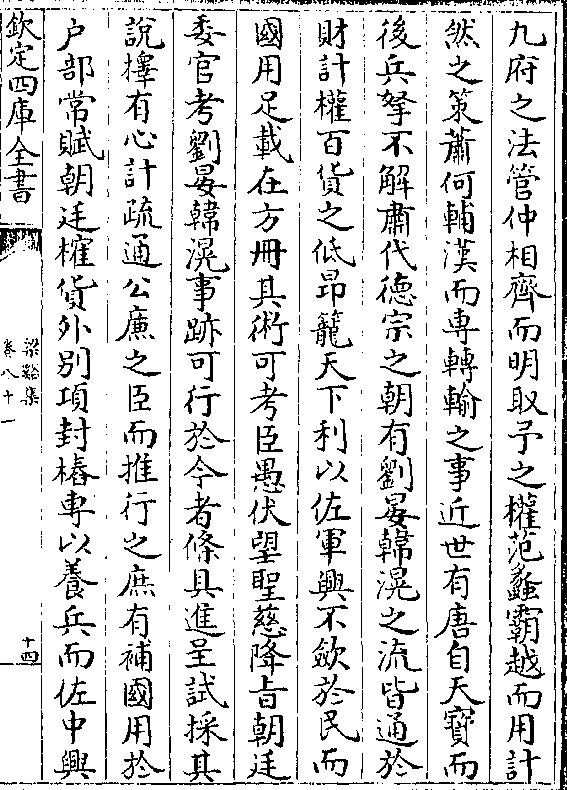 九府之法管仲相齊而明取予之權范蠡霸越而用計
然之策蕭何輔漢而専轉輸之事近世有唐自天寳而
後兵拏不解肅代徳宗之朝有劉晏韓滉之流皆通於
財計權百貨之低昂籠天下利以佐軍興不歛於民而
國用足載在方冊其術可考臣愚伏望聖慈降㫖朝廷
委官考劉晏韓滉事跡可行於今者條具進呈試採其
說擇有心計疏通公亷之臣而推行之庶有補國用於
户部常賦朝廷榷貨外別項封樁専以養兵而佐中興
欽定四庫全書
梁谿集
卷八十一
十四